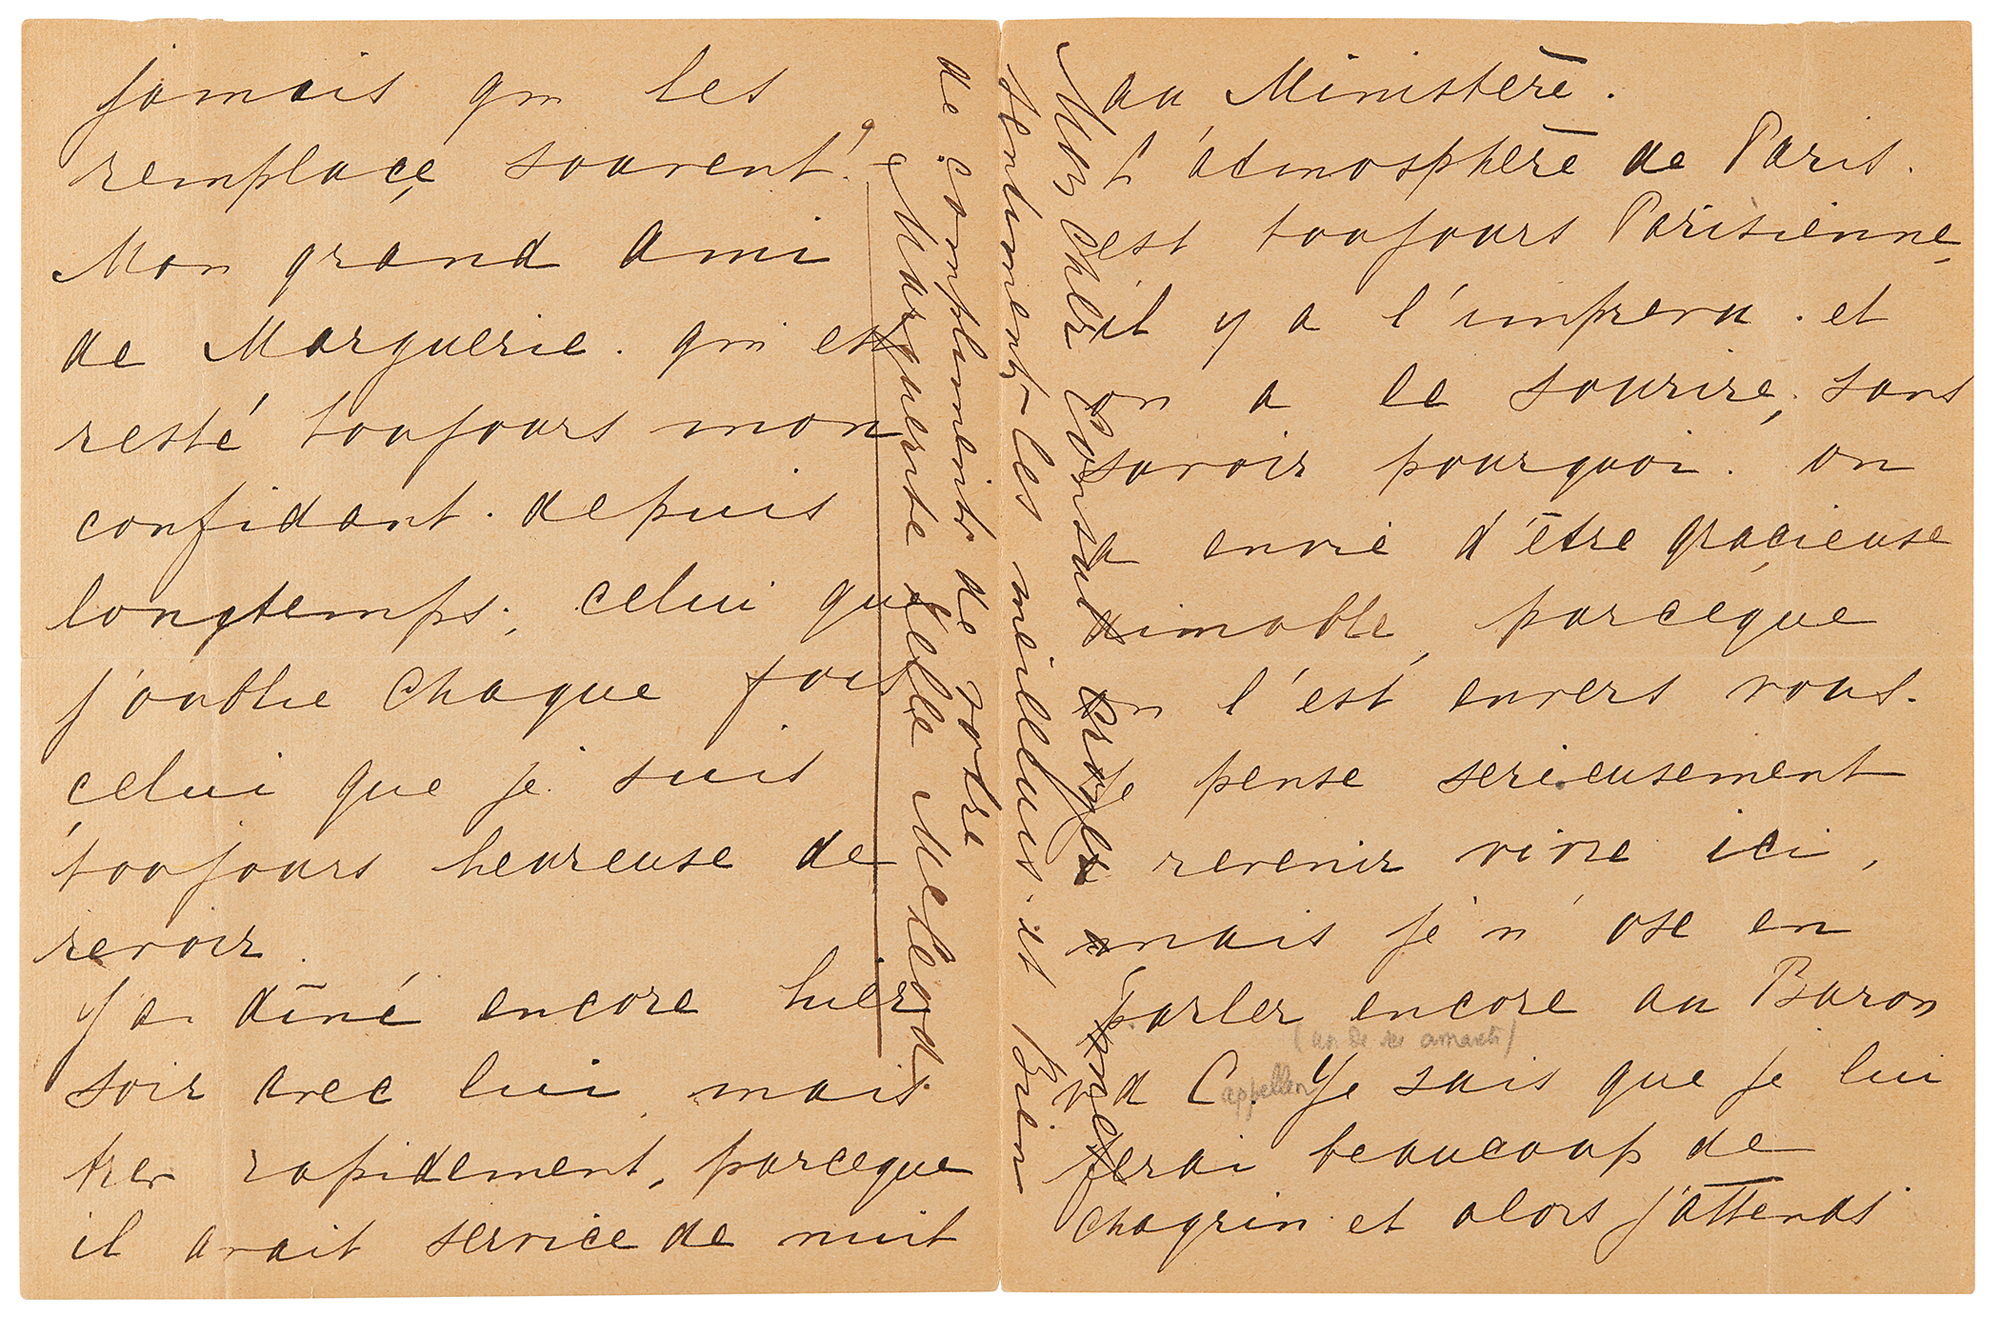 jamais qui les
remplace, souvent!
Mon grand ami
de Marguerie. qui est
resté toujours mon
confidant. depuis
longtemps, celui que
j'oublie chaque fois
celui que je suis
toujours heureuse de
revoir.
J'ai dîné encore hier
soir avec lui mais
tres rapidement, parceque
il avait service de nuit
au Ministère.
L'atmosphère de Paris.
est toujours Parisienne,
il y a l'imprevu. et
on a le sourire, sans
savoir pourquoi. on
a envie d'être gracieuse
aimable, parceque
on l'est envers vous.
Je pense serieusement
revenir vivre ici,
mais je n'ose en
parler encore au Baron
vd C. Je sais que je lui
(un de ses amants)
appellen
ferai beaucoup de
chagrin et alors j'attends
Mon cher Consul
sentiments les meilleurs. et Bien
de compliments de votre
Marguerite Zelle McLeod.